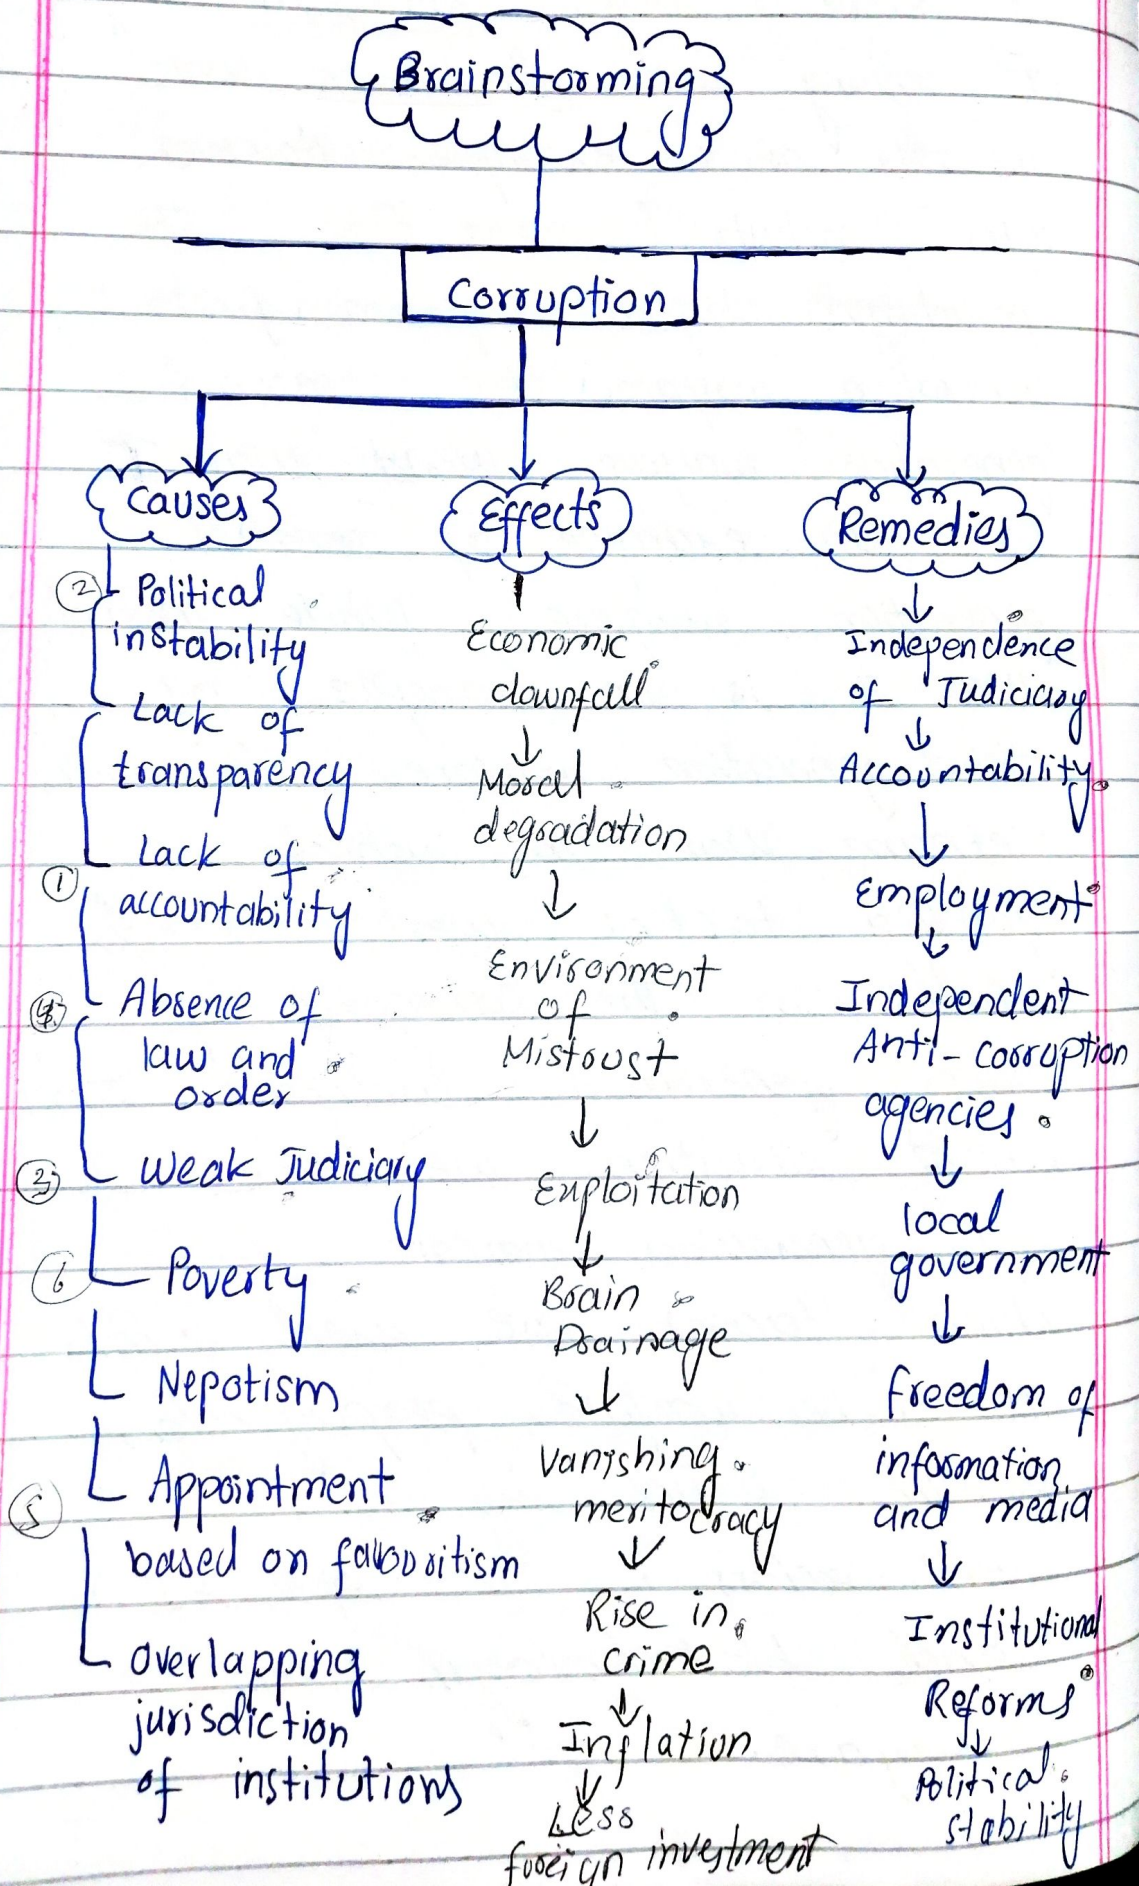 Brainstorming
Corruption
Causes
② Political
instability
Lack of
transparency
Lack of
① accountability
④ Absence of
law and
order
③ Weak Judiciary
⑥ Poverty
Nepotism
Appointment
⑤
based on favouritism
Overlapping
jurisdiction
of institutions
Effects
Economic
downfall
Moral
degradation
Environment
of
Mistrust
Exploitation
Brain
Drainage
Vanishing
meritocracy
Rise in
crime
Inflation
Less
foreign investment
Remedies
Independence
of Judiciary
Accountability
Employment
Independent
Anti-corruption
agencies.
local
government
freedom of
information
and media
Institutional
Reforms
Political
stability